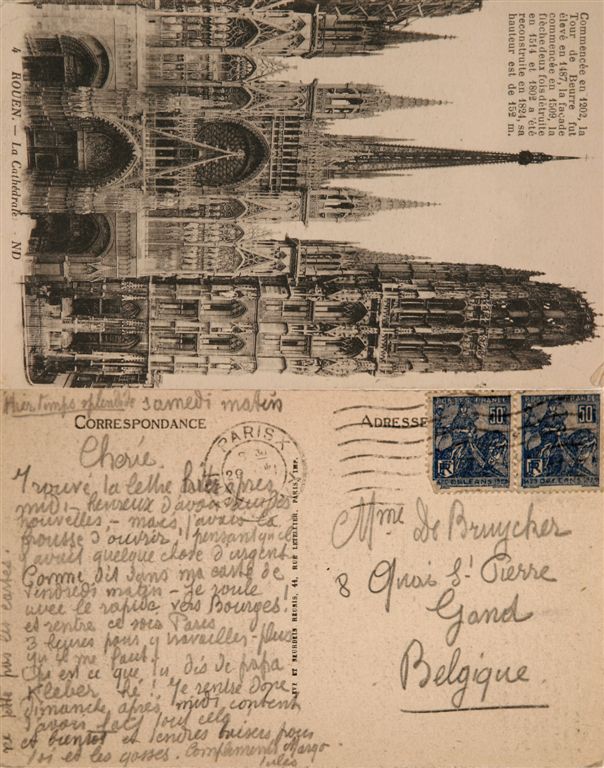 Commencée en 1202, la
Tour de Beurre fut
élevé en 1487, la façade
commencée en 1509, la
flèche deux fois détruite
en 1514 et 1802 a été
reconstruite en 1824, sa
hauteur est de 152 m.
4 ROUEN. — La Cathédrale. ND
Hier temps splendide samedi matin
CORRESPONDANCE
Cherie.
Trouvé la lettre hier après
midi - heureux d'avoir
nouvelles, - mais j'avais la
frousse d'ouvrir! pensant qu'il
y avait quelque chose d'urgent
Comme dit dans ma carte de
vendredi matin - je roule
avec le rapide vers Bourges!
et rentre ce soir Paris
3 heures pour y travailler - plus
qu'il me faut!
Qu'est ce que tu dis de papa
Kleber hé! Je rentre donc
Dimanche, après midi, content
d'avoir fait tout cela
et bientot et tendres baisers pour
toi et les gosses. Compliments Margo
Jules
ne jette pas les cartes!
NEURDEIN RÉUNIS, 44, RUE LETELLIER, PARIS, IMP.
PARIS X
29
ADRESSE
POSTES FRANCE
50c
RF
ORLÉANS
POSTES FRANCE
50c
RF
ORLÉANS 1929
Mme De Bruycker
8 Quai St Pierre
Gand
Belgique